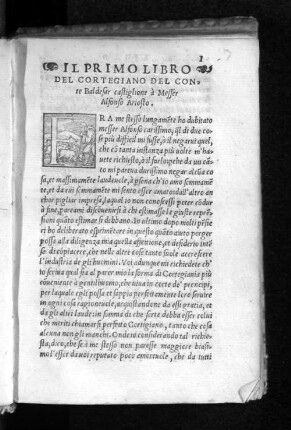 1
IL PRIMO LIBRO
DEL CORTEGIANO DEL CON-
te Baldesar castiglione à Messer
Alfonso Ariosto.
FRA me stesso lungamẽte ho dubitato
messer Alfonso carissimo, ql di due co-
se più difficil mi fusse, ò il negarui quel,
che cõ tanta instantia più uolte m'ha-
uete richiesto, ò il farlo; pche da un cã-
to mi parea durissimo negar alcũa co-
sa, et massimamẽte laudeuole, à psona ch'io amo sommamẽ-
te, et da cui sommamẽte mi sento esser amato:
dall'altro an-
chor pigliar impresa, la qual io non conoscessi poter cõdur
à fine, pareami
ti ho deliberato esperimẽtare in questo quãto aiuto porger
possa alla diligenza mia quella affettione, et desiderio intẽ-
so di cõpiacere, che nelle altre cose tanto suole accrescere
l'industria de gli huomini. Voi adunque mi richiedete ch'
io scriua qual sia al parer mio la forma di Cortegiania più
cõueniente à gentilhuomo, che uiua in corte de' prencipi,
per laquale egli possa et sappia perfettamente loro seruire
in ogni cosa ragioneuole, acquistandone da essi gratia, et
da gli altri laude: in somma di che sorte debba esser colui
che meriti chiamarsi perfetto Cortegiano, tanto che cosa
alcuna non gli manchi. Onde io considerando tal richie-
sta, dico, che se à me stesso non paresse maggiore biasi-
mo l'esser da uoi reputato poco amoreuole, che da tutti